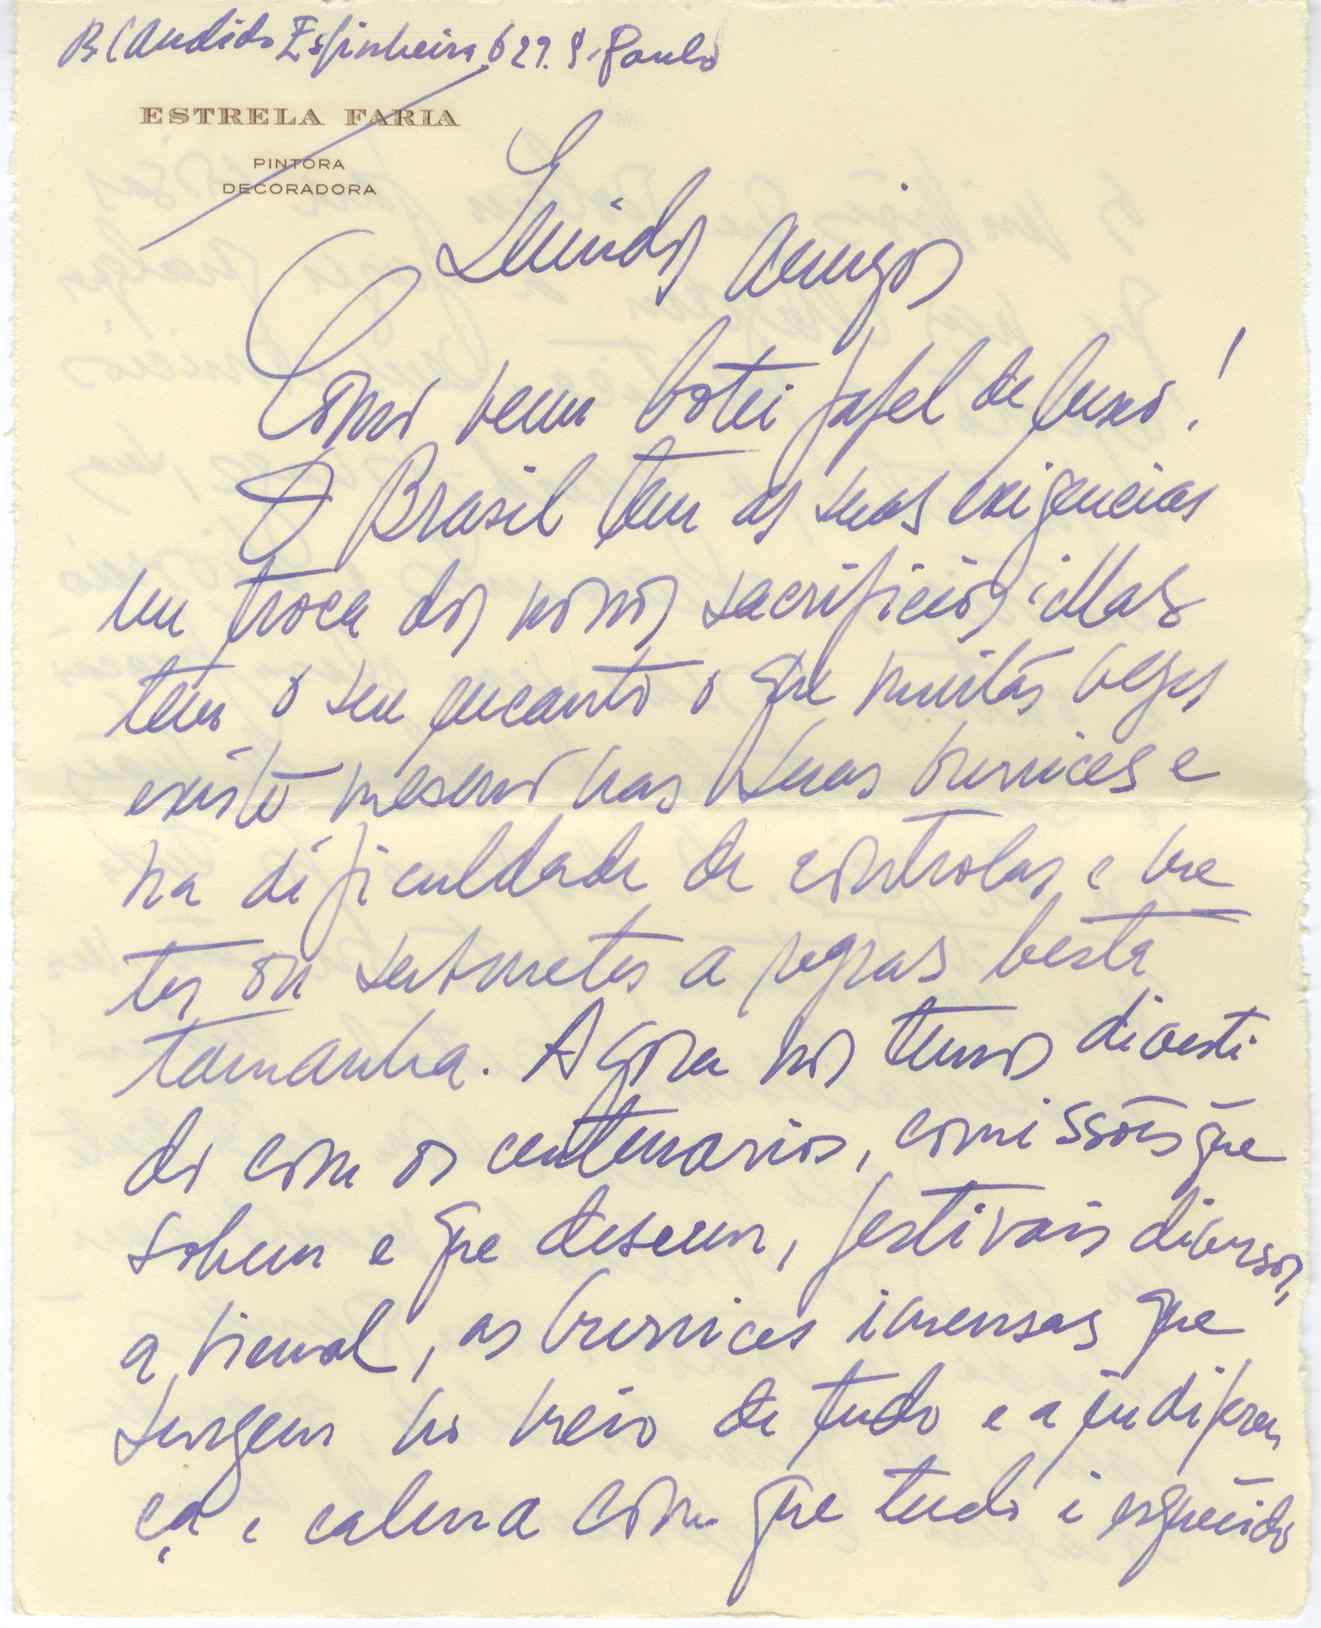 R Candido Espinheira 629. S. Paulo
ESTRELA FARIA
PINTORA
DECORADORA
Queridos amigos
Como veem botei papel de luxo!
O Brasil tem as suas exigencias
em troca dos nossos sacrificios; Mas
tem o seu encanto o que muitas vezes
existe mesmo nas suas burrices e
na dificuldade de controlar, e me
ter ou submeter a regras besta
tamanha. Agora nos temos diverti
do com os centenarios, comissões que
sobem e que descem, festivais diversos,
a bienal, as burrices imensas que
surgem no meio de tudo e a indiferen
ça e calma com que tudo é esquecido